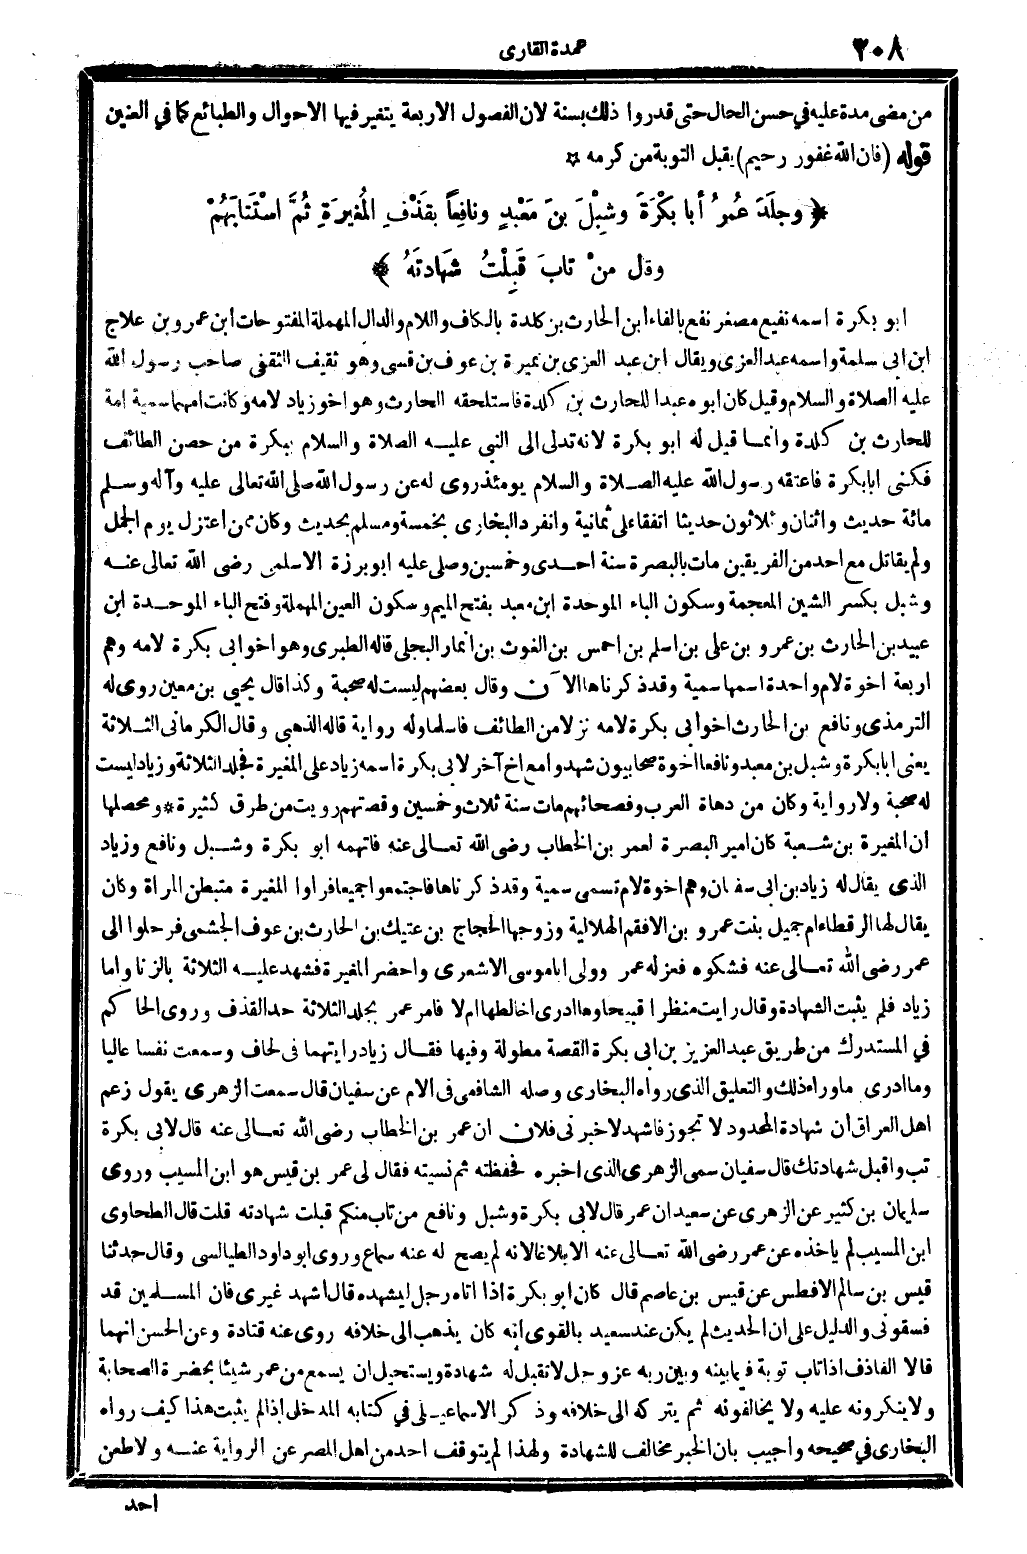 ٢٠٨
عمدة القارى
من مضى مدة عليه في حسن الحال حتى قدروا ذلك بسنة لان الفصول الاربعة يتغير فيها الاحوال والطبائع كما في العنين
قوله (فان الله غفور رحيم) يقبل التوبة من كرمه ☆
﴿ وجَلَدَ عُمَرُ أبا بَكْرَةَ وشِبْلَ بنَ مَعْبَدٍ ونافِعاً بقَذْفِ المُغِيرَةِ ثُمَّ اسْتَتابَهُمْ
وقال منْ تابَ قَبِلْتُ شَهادَتَهُ ﴾
ابو بكرة اسمه نفيع مصغر نفع بالفاء ابن الحارث بن كلدة بالكاف واللام والدال المهملة المفتوحات ابن عمرو بن علاج
ابن ابى سلمة واسمه عبد العزى ويقال ابن عبد العزى بن نميرة بن عوف بن قسى وهو ثقيف الثقفى صاحب رسول الله
عليه الصلاة والسلام وقيل كان ابوه عبدا للحارث بن كلدة فاستلحقه الحارث وهو اخو زياد لامه وكانت امهما سمية امة
للحارث بن كلدة وانمـا قيل له ابو بكرة لانه تدلى الى النبى عليـه الصلاة والسلام ببكرة من حصن الطائف
فكنى ابا بكرة فاعتقه رسول الله عليه الصـلاة والسلام يومئذ روى له عن رسول الله صلى الله تعالى عليه وآله وسـلم
مائة حديث واثنان وثلاثون حديثا اتفقا على ثمانية وانفرد البخارى بخمسة ومسلم بحديث وكان ممن اعتزل يوم الجمل
ولم يقاتل مع احد من الفريقين مات بالبصرة سنة احـدى وخمسين وصلى عليه ابو برزة الاسلمى رضى الله تعالى عنـه
وشبل بكسر الشين المعجمة وسكون الباء الموحدة ابن معبد بفتح الميم وسكون العين المهملة وفتح الباء الموحـدة ابن
عبيد بن الحارث بن عمرو بن على بن اسلم بن احمس بن الغوث بن انمار البجلى قاله الطبرى وهو اخو ابى بكرة لامه وهم
اربعة اخوة لام واحدة اسمها سمية وقد ذكرناها الآن وقال بعضهم ليست له صحبة وكذا قال يحيى بن معين روى له
الترمذى ونافع بن الحارث اخو ابى بكرة لامه نزلا من الطائف فاسلما وله رواية قاله الذهبى وقال الكرمانى الثـلاثة
يعنى ابا بكرة وشبل بن معبد ونافعا اخوة صحابيون شهدوا مع اخ آخر لابى بكرة اسمه زياد على المغيرة فجلد الثلاثة وزياد ليست
له صحبة ولا رواية وكان من دهاة العرب وفصحائهم مات سنة ثلاث وخمسين وقصتهم رويت من طرق كثيرة * ومحصلها
ان المغيرة بن شـعبة كان امير البصرة لعمر بن الخطاب رضى الله تعـالى عنه فاتهمه ابو بكرة وشـبل ونافع وزياد
الذى يقال له زياد بن ابى سفيان وهم اخوة لام تسمى سمية وقد ذكرناها فاجتمعوا جميعا فراوا المغيرة متبطن المراة وكان
يقال لها الرقطاء ام جميل بنت عمرو بن الافقم الهلالية وزوجها الحجاج بن عتيك بن الحارث بن عوف الجشمى فرحلوا الى
عمر رضى الله تعـالى عنه فشكوه فعزله عمر وولى ابا موسى الاشعرى واحضر المغيرة فشهد عليـه الثلاثة بالزنا واما
زياد فلم يثبت الشهادة وقال رايت منظرا قبيحا وما ادرى اخالطها ام لا فامر عمر بجلد الثلاثة حد القذف وروى الحاكم
في المستدرك من طريق عبد العزيز بن ابى بكرة القصة مطولة وفيها فقـال زياد رايتهما فى لحاف وسمعت نفسا عاليا
وما ادرى ما وراء ذلك والتعليق الذى رواه البخارى وصله الشافعى فى الام عن سفيان قال سمعت الزهرى يقول زعم
اهل العراق ان شهادة المحدود لا تجوز فاشهد لاخبرنى فلان ان عمر بن الخطاب رضى الله تعـالى عنه قال لابى بكرة
تب واقبل شهادتك قال سفيان سمى الزهرى الذى اخبره فحفظته ثم نسيته فقال لى عمر بن قيس هو ابن المسيب وروى
سليمان بن كثير عن الزهرى عن سعيد ان عمر قال لابى بكرة وشبل ونافع من تاب منكم قبلت شهادته قلت قال الطحاوى
ابن المسيب لم ياخذه عن عمر رضى الله تعـالى عنه الا بلاغا لانه لم يصح له عنه سماع وروى ابو داود الطيالسى وقال حدثنا
قيس بن سالم الافطس عن قيس بن عاصم قال كان ابو بكرة اذا اتاه رجل ليشهده قال اشهد غيرى فان المسـلمين قد
فسقونى والدليل على ان الحديث لم يكن عند سعيد بالقوى انه كان يذهب الى خلافه روى عنه قتادة وعن الحسن انهما
قالا القاذف اذا تاب توبة فيما بينه وبين ربه عز وجل لا تقبل له شهادة ويستحيل ان يسمع من عمر شيئا بحضرة الصحابة
ولا ينكرونه عليه ولا يخالفونه ثم يتركه الى خلافه وذكر الاسماعيـلى في كتابه المدخل اذا لم يثبت هذا كيف رواه
البخارى في صحيحه واجيب بان الخبر مخالف للشهادة ولهذا لم يتوقف احد من اهل المصر عن الرواية عنـه ولا طعن
احد